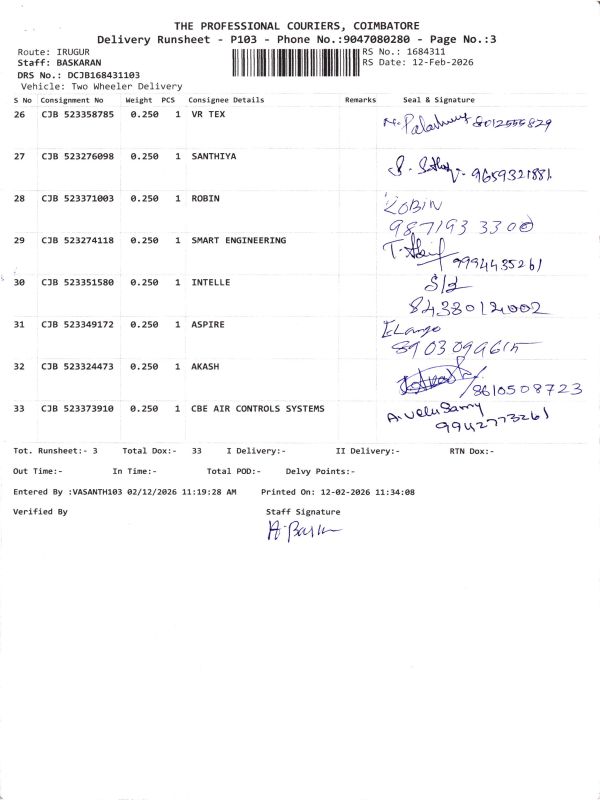 THE PROFESSIONAL COURIERS, COIMBATORE
Delivery Runsheet - P103 - Phone No.:9047080280 - Page No.:3
Route: IRUGUR RS No.: 1684311
Staff: BASKARAN RS Date: 12-Feb-2026
DRS No.: DCJB168431103
Vehicle: Two Wheeler Delivery
S No Consignment No Weight PCS Consignee Details Remarks Seal & Signature
26 CJB 523358785 0.250 1 VR TEX 8012555829
27 CJB 523276098 0.250 1 SANTHIYA 9659321881
28 CJB 523371003 0.250 1 ROBIN ROBIN
987193 3300
29 CJB 523274118 0.250 1 SMART ENGINEERING
9994435261
30 CJB 523351580 0.250 1 INTELLE
8438012002
31 CJB 523349172 0.250 1 ASPIRE ELango
32 CJB 523324473 0.250 1 AKASH 8610508723
33 CJB 523373910 0.250 1 CBE AIR CONTROLS SYSTEMS A.VeluSamy
9942773261
Tot. Runsheet:- 3 Total Dox:- 33 I Delivery:- II Delivery:- RTN Dox:-
Out Time:- In Time:- Total POD:- Delvy Points:-
Entered By :VASANTH103 02/12/2026 11:19:28 AM Printed On: 12-02-2026 11:34:08
Verified By Staff Signature